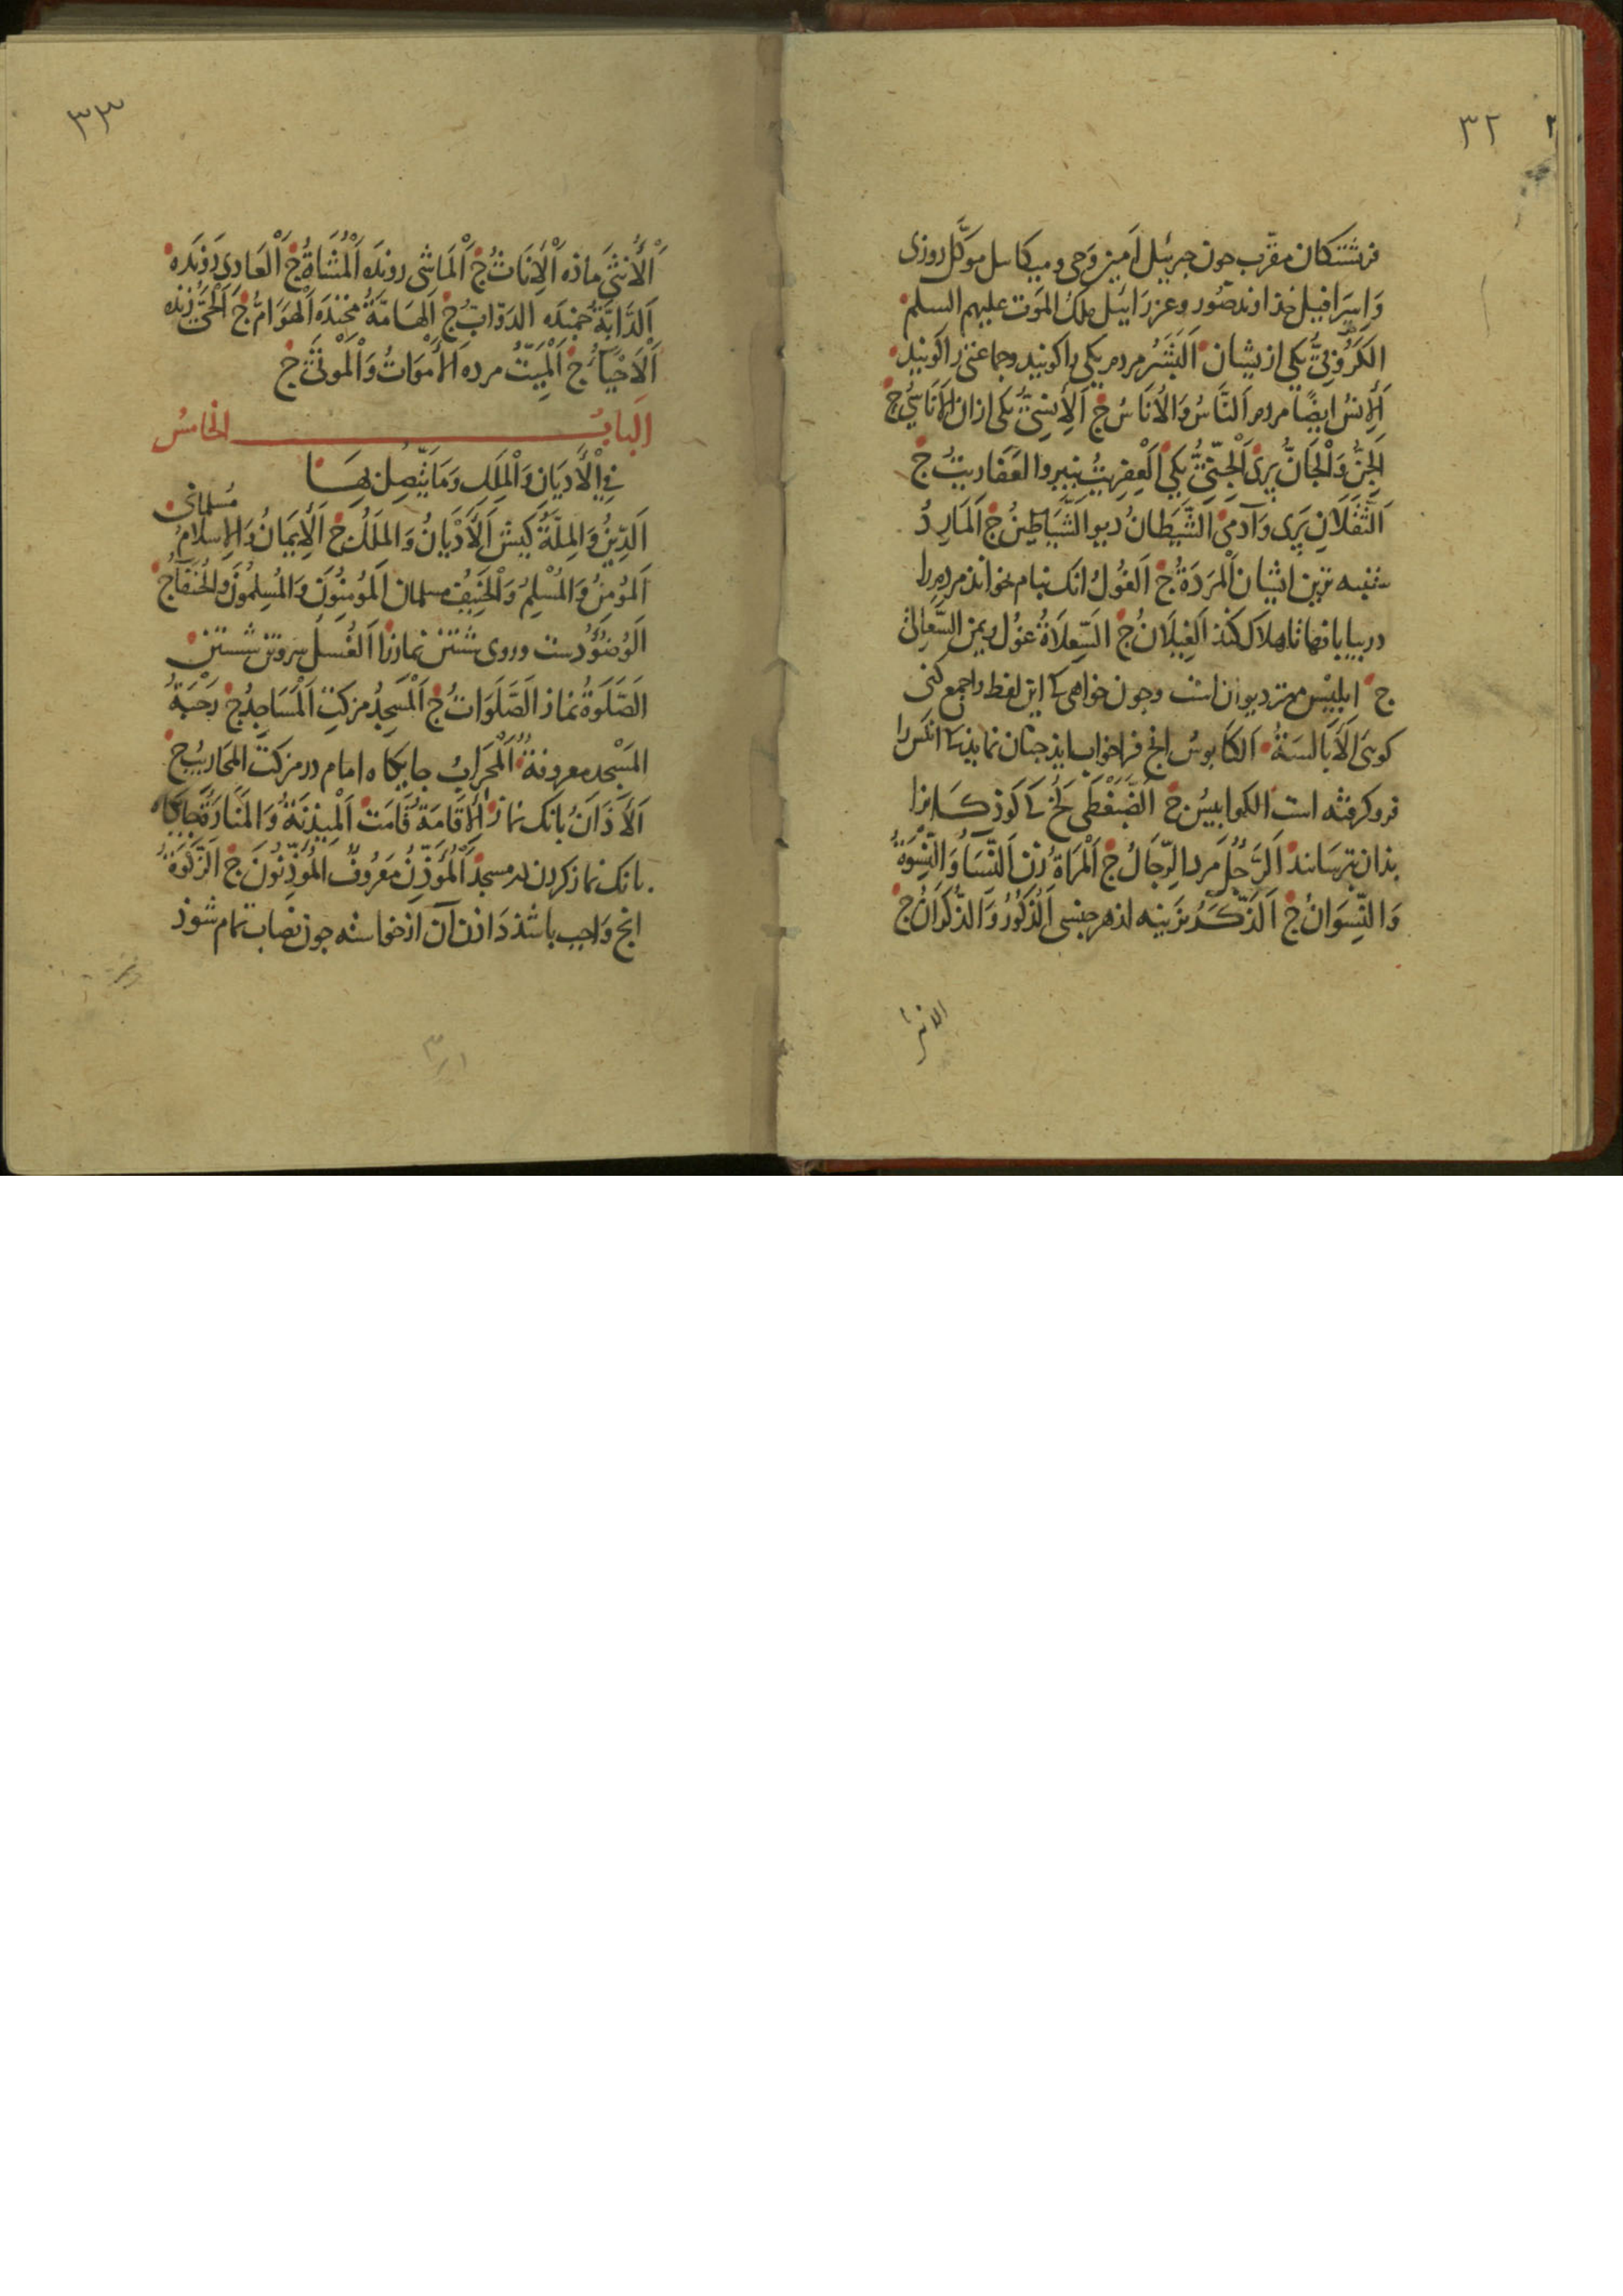 ٣٢
فرشتكان مقرّب چون جبرئيل امين وحى و ميكاسل موكّل روزى
وَاِسرَافيل خذاوند صُور وعزرَائيل ملكُ المَوت عليهم السلم
الكَرُّوبِىُّ يكى ازيشان اَلبَشَرُ مردم يكى را كويند وجماعتى را كويند
اَلإنسُ ايضًا مردم اَلنَّاسُ وَالأُنَاسُ ج اَلإنسِىُّ يكى ازان الأَنَاسِىُّ ج
اَلجِنُّ وَالْجَانُّ پرى اَلْجِنِّىُّ يكى اَلْعِفرِيتُ ستنبه ديو العَفَاريتُ ج
اَلثَّقَلَانِ پَرى وَآدمى اَلشَّيطَانُ ديو الشَّيَاطِينُ ج اَلمَارِدُ
ستنبه ترين ايشان اَلْمَرَدَةُ ج اَلغُولُ انك بنام خواند مردم را
در بيابانها تا هلاك كند اَلغِيلَانُ ج اَلسِّعلَاةُ غول ريمن السَّعَالِى
ج ابليس مهتر ديوان است وچون خواهى كه اين لفظ را جمع كنى
كوىى اَلأَبَالسَةُ اَلكَابوُس انج فرا خواب ايد چنان نمايد كه انكس را
فرو كرفته است الكوابيسُ ج اَلضَّبَغْطَى كخ كه كوذكانرا
بذان بترسانند اَلرَّجُلُ مَرد الرِّجَالُ ج اَلْمَرأةُ زن اَلنِّسَاءُ وَالنِّسوَةُ
وَالنِّسوَانُ ج اَلذَّكَرُ نرينه از هر جنسى اَلذُّكُورُ وَالذُّكرَانُ ج
الانثى
٣٣
اَلأُنثَى ماذه اَلإِنَاثُ ج اَلمَاشِى رونده اَلْمُشَاةُ ج اَلْعَادِى دَوَنده
اَلدَّابَّةُ جمنده الدَوَّابُّ ج اَلهَامَّةُ خزنده اَلْهَوَامُّ ج اَلْحَىُّ زنده
اَلْأَحْيَآءُ ج اَلْمَيِّتُ مرده الأَمْوَاتُ وَالْمَوْتَى ج
البابُ الخامسُ
فِى الْأَديَانِ وَالْمِلَلِ وَمَا يَتَّصِلُ بِهَا
اَلدِّينُ وَالمِلَّةُ كيش اَلأَدْيَانُ وَالمِلَلُ ج اَلْإِيمَانُ وَالإسلَامُ مُسلمانى
اَلمُؤمِنُ وَالمُسْلِمُ وَالْحَنِيفُ مسلمان اَلمُؤمِنُونَ وَالمُسلِمُونَ وَالحُنَفَآءُ ج
اَلوُضُوءُ دست وروى شستن نمازرا اَلغُسلُ سر وتن شستن
الصَّلَوةُ نماز الصَّلَوَاتُ ج اَلْمَسجِدُ مزكت اَلْمَسَاجِدُ ج رَحْبَةُ
المَسْجِد معروفةٌ اَلْمِحْرَابُ جايكاه امام در مزكت المَحَاريبُ ج
اَلأَذَانُ بانك نماز اَلإقَامَةُ قَامَت اَلمِيذَنَةُ وَالمَنَارَةُ جايكاه
بانك نماز كردن در مسجد اَلْمُؤَذِّنُ مَعرُوفٌ المُؤَذِّنُونَ ج اَلزَّكوَةُ
انج وَاجب باشذ دَاذن آن از خواسته چون نصاب تمام شوذ